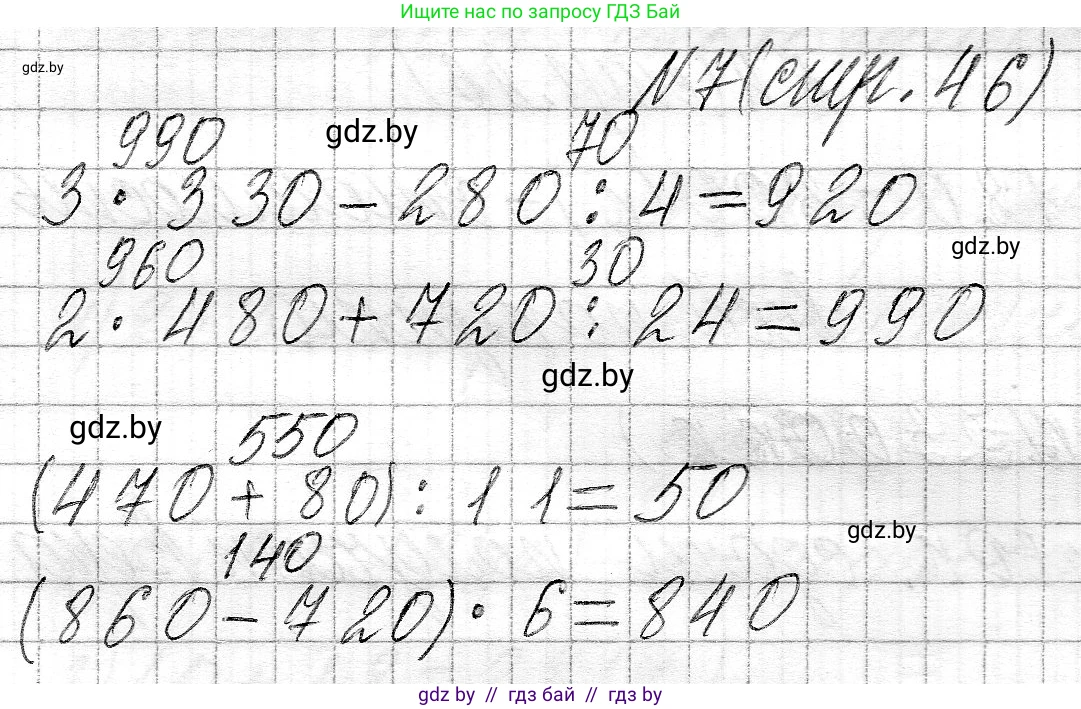 Ищите нас по запросу ГДЗ Бай
gdz.by
N 7 (стр. 46)
990 gdz.by 70
3 · 330 - 280 : 4 = 920
960 30 gdz.by
2 · 480 + 720 : 24 = 990
gdz.by
gdz.by 550
(470 + 80) : 11 = 50
140 gdz.by
(860 - 720) · 6 = 840
gdz by // гдз бай // gdz by